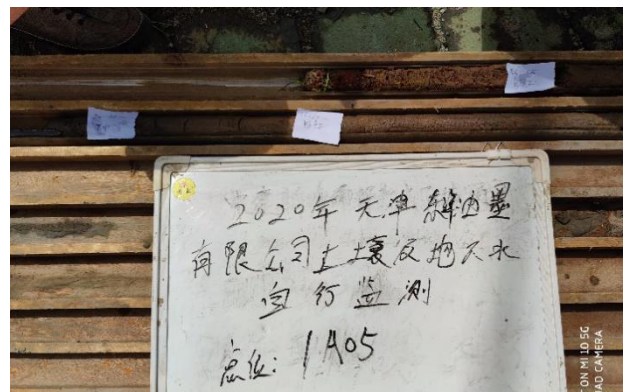 2020年 天津东洋油墨
有限公司土壤及地下水
自行监测
点位: 1A05
ON MI 10 5G
AD CAMERA